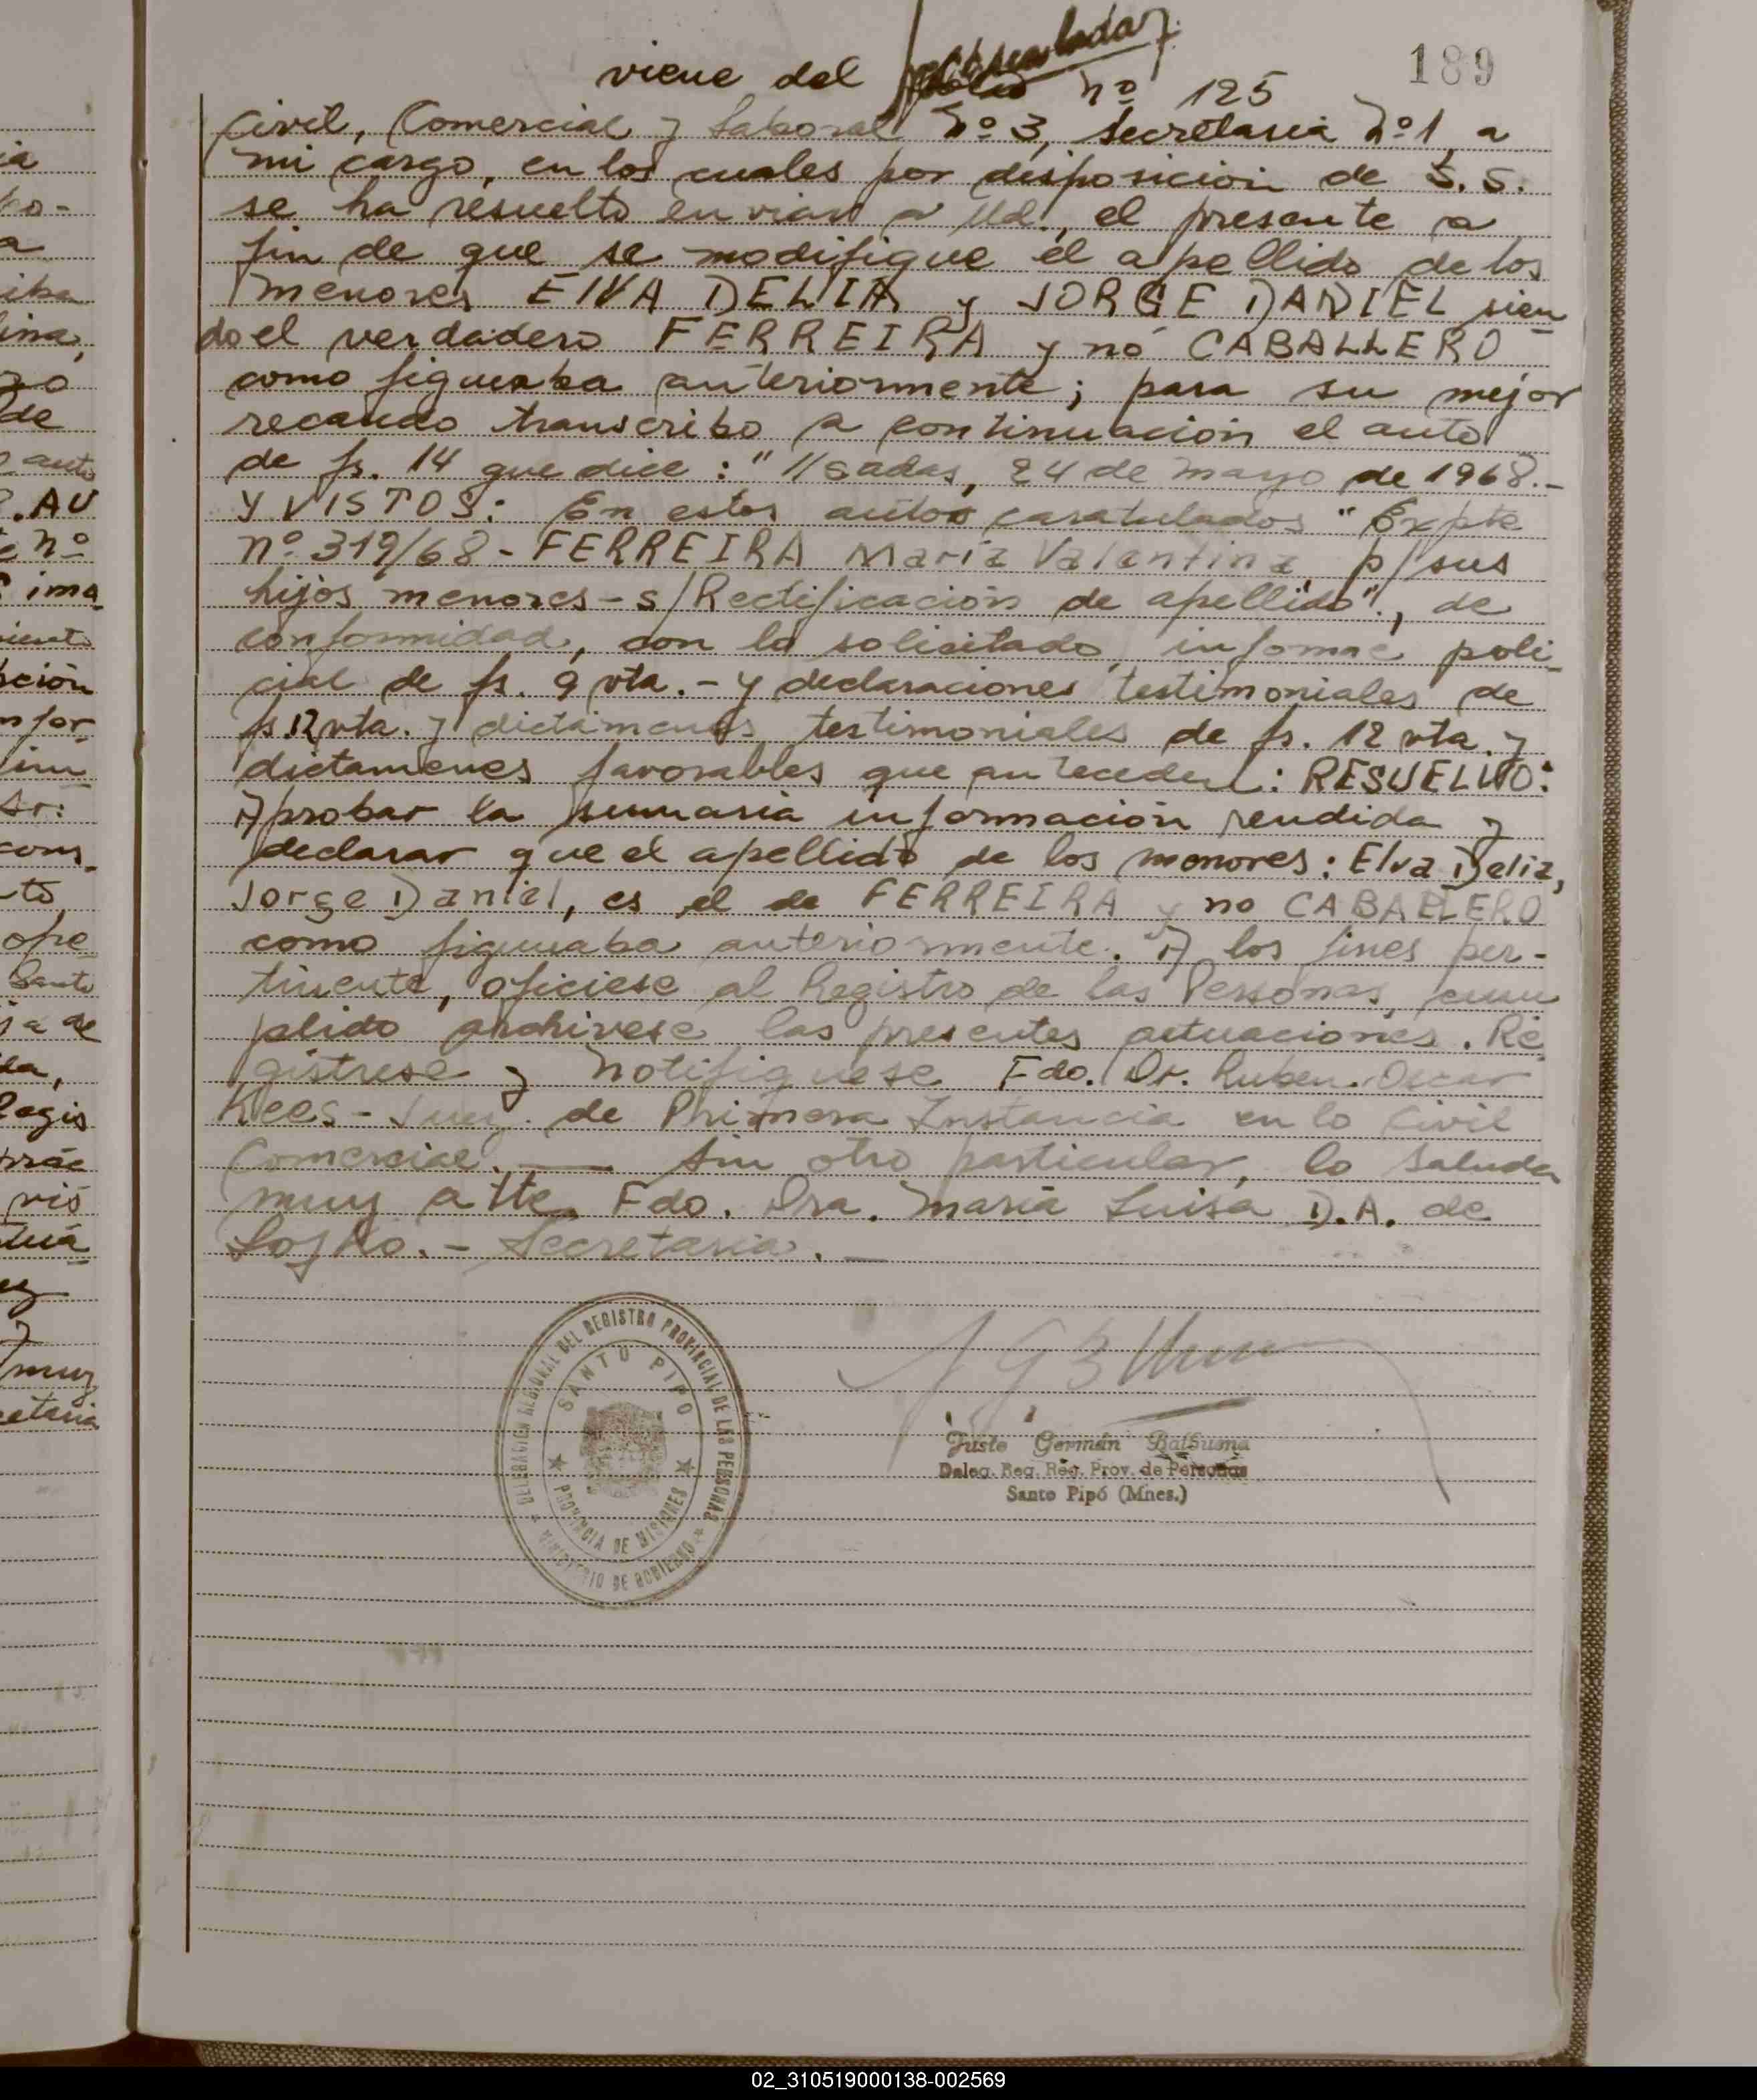 189
viene del nº 125
Civil, Comercial y Laboral Nº 3, Secretaria Nº 1, a
mi cargo, en los cuales por disposicion de S. S.
se ha resuelto enviar a Ud., el presente a
fin de que se modifique el apellido de los
menores ELVA DELIA y JORGE DANIEL sien
do el verdadero FERREIRA y nó CABALLERO
como figuraba anteriormente; para su mejor
recaudo transcribo a continuación el auto
de fs. 14 que dice: "//sadas, 24 de mayo de 1968.-
Y VISTOS: En estos autos caratulados "Expte
nº 319/68 - FERREIRA María Valentina p/ sus
hijos menores - s/Rectificación de apellido"., de
conformidad, con lo solicitado, infomae poli-
cial de fs. 9 vta. - y declaraciones testimoniales de
fs 12 vta. y dictámenes testimoniales de fs. 12 vta. y
dictamenes favorables que anteceden: RESUELVO:
Aprobar la sumaria información rendida y
declarar que el apellido de los menores: Elva Delia,
Jorge Daniel, es el de FERREIRA y no CABALLERO
como figuraba anteriormente. A los fines per-
tinente, oficiese al Registro de las Personas, cum
plido archivese las presentes actuaciones. Re
gistrese y Notifiquese Fdo. Dr. Ruben Oscar
Kees - Juez de Primera Instancia en lo Civil
Comercial. — Sin otro particular, lo saluda
muy atte. Fdo. Dra. María Luisa D.A. de
- Secretaria. —
DELEGACION REGIONAL DEL REGISTRO PROVINCIAL DE LAS PERSONAS
SANTO PIPO
PROVINCIA DE MISIONES
MINISTERIO DE GOBIERNO
Justo Germán Balbuena
Deleg. Reg. Reg. Prov. de Personas
Santo Pipó (Mnes.)
02_310519000138-002569